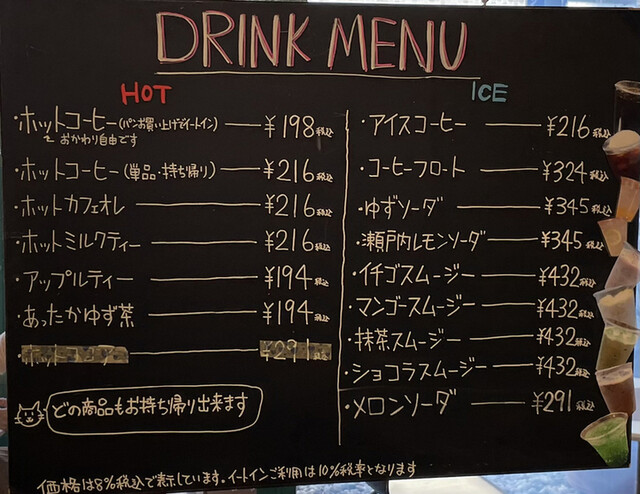 DRINK MENU
HOT
・ホットコーヒー(パンお買い上げでイートイン) ¥198税込
おかわり自由です
・ホットコーヒー(単品・持ち帰り) ¥216税込
・ホットカフェオレ ¥216税込
・ホットミルクティー ¥216税込
・アップルティー ¥194税込
・あったかゆず茶 ¥194税込
¥291税込
どの商品もお持ち帰り出来ます
ICE
・アイスコーヒー ¥216税込
・コーヒーフロート ¥324税込
・ゆずソーダ ¥345税込
・瀬戸内レモンソーダ ¥345税込
・イチゴスムージー ¥432税込
・マンゴースムージー ¥432税込
・抹茶スムージー ¥432税込
・ショコラスムージー ¥432税込
・メロンソーダ ¥291税込
価格は8%税込で表示しています。イートインご利用は10%税率となります